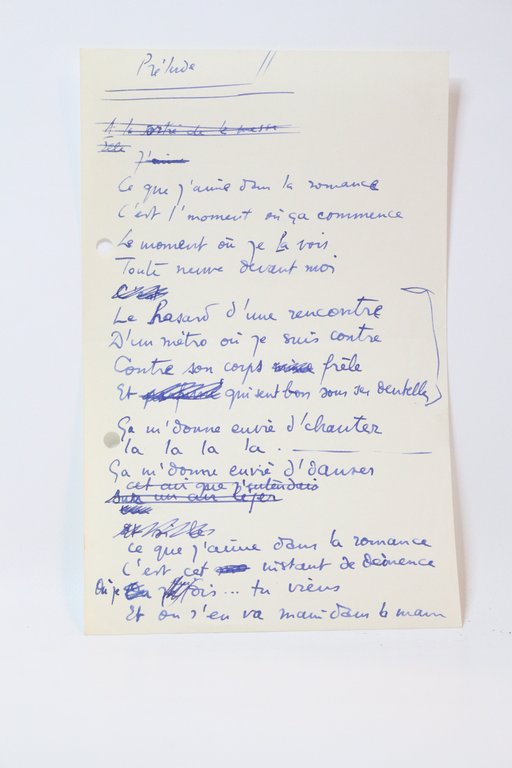 Prélude
A la sortie de la messe
J'aime
Ce que j'aime dans la romance
C'est l'moment où ça commence
Le moment où je la vois
Toute neuve devant moi
Le hasard d'une rencontre
D'un métro où je suis contre
Contre son corps frêle
Et qui sent bon sous ses dentelles
Ça m'donne envie d'chanter
la la la la .
Ça m'donne envie d'danser
cet air que j'entendais
sur un air léger
Ce que j'aime dans la romance
C'est cet instant de démence
Où je dis... tu viens
Et on s'en va main dans la main